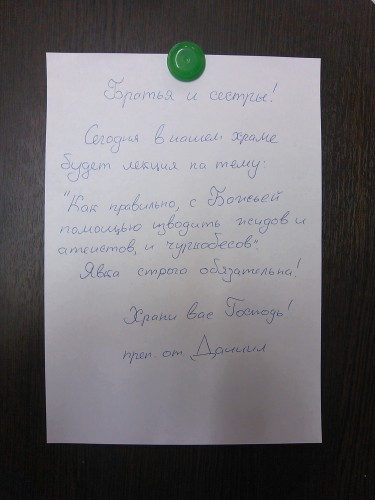 Братья и сестры!
Сегодня в нашем храме
будет лекция на тему:
"Как правильно, с Божьей
помощью изводить жидов и
атеистов, и чуркобесов".
Явка строго обязательна!
Храни вас Господь!
преп. от. Даниил